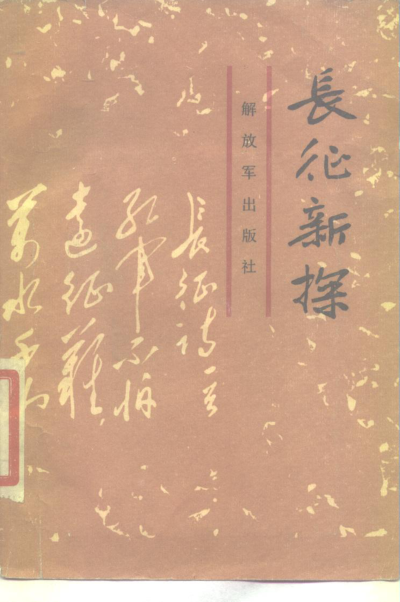 長征新探
解放军出版社
長征诗一首
红軍不怕
遠征難
萬水千